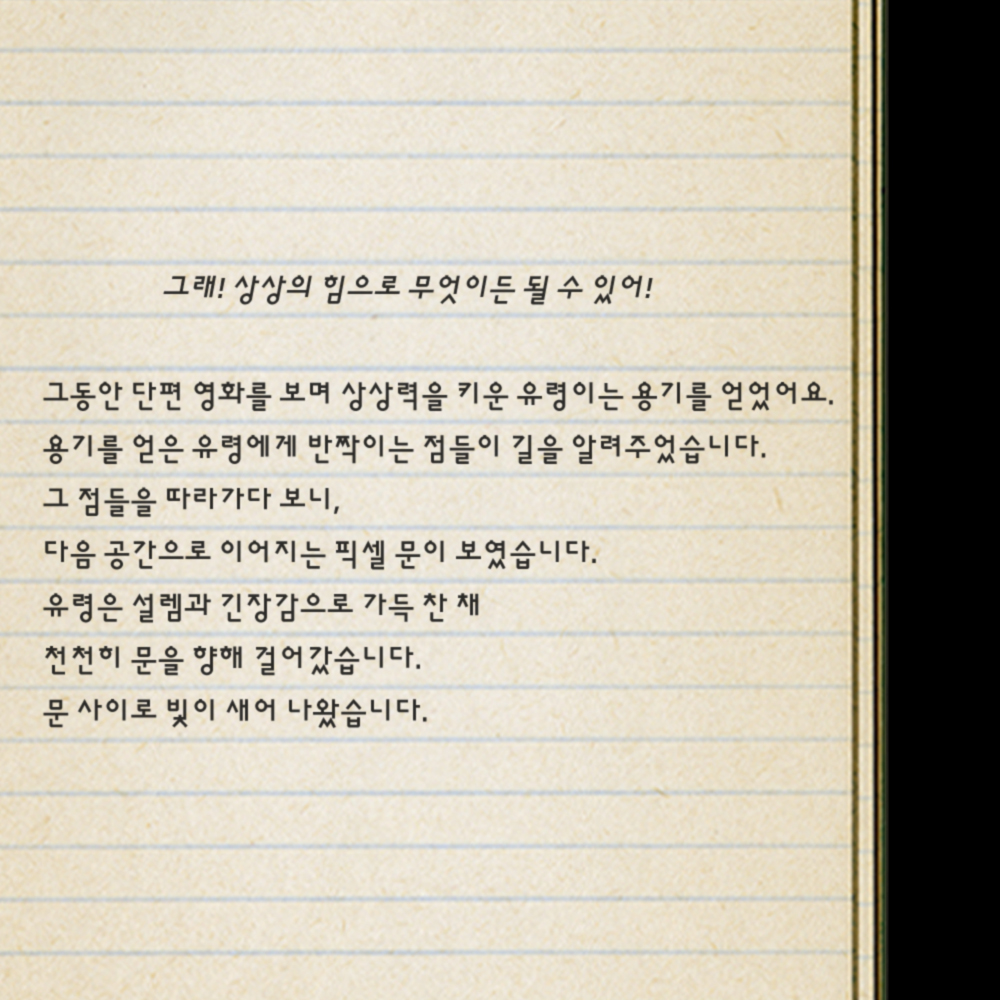 그래! 상상의 힘으로 무엇이든 될 수 있어!
그동안 단편 영화를 보며 상상력을 키운 유령이는 용기를 얻었어요.
용기를 얻은 유령에게 반짝이는 점들이 길을 알려주었습니다.
그 점들을 따라가다 보니,
다음 공간으로 이어지는 픽셀 문이 보였습니다.
유령은 설렘과 긴장감으로 가득 찬 채
천천히 문을 향해 걸어갔습니다.
문 사이로 빛이 새어 나왔습니다.